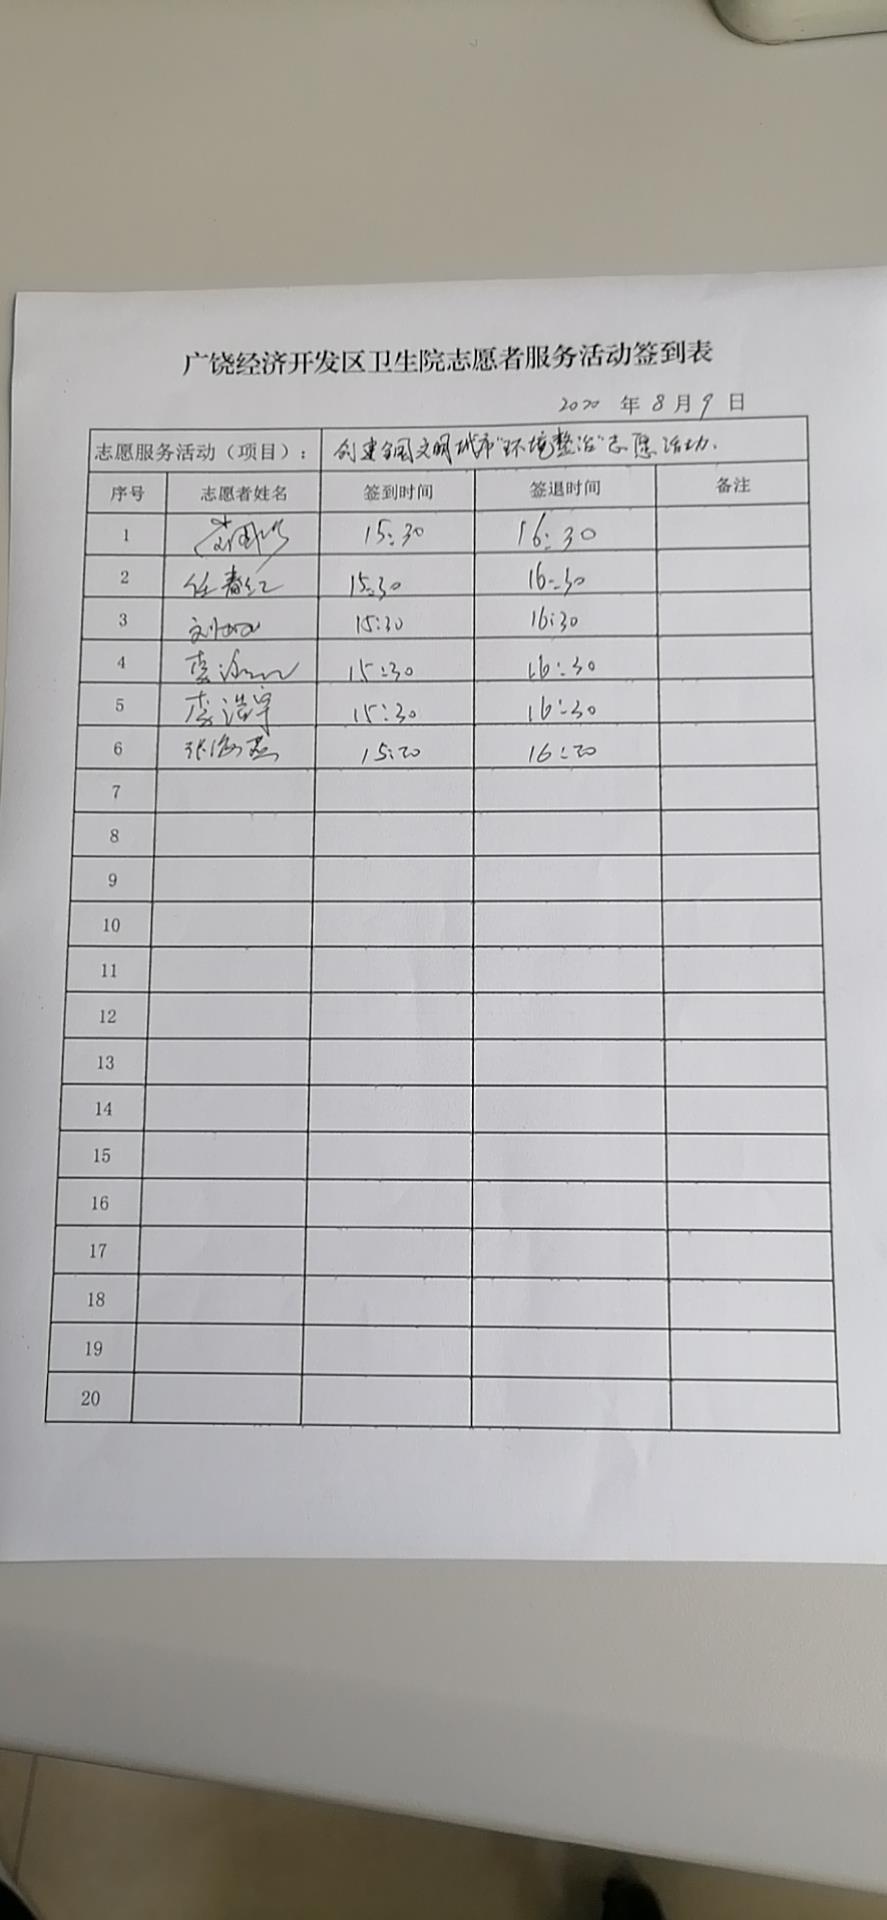 广饶经济开发区卫生院志愿者服务活动签到表
2020 年 8 月 9 日
志愿服务活动（项目）： 创建全国文明城市"环境整治"志愿活动.
序号 志愿者姓名 签到时间 签退时间 备注
1 15:30 16:30
2 任春红 15:30 16:30
3 刘 15:30 16:30
4 李 15:30 16:30
5 李浩宇 15:30 16:30
6 张海燕 15:20 16:20
7
8
9
10
11
12
13
14
15
16
17
18
19
20